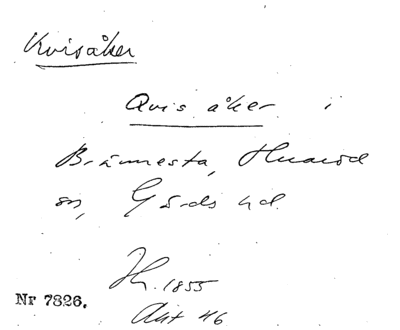 Kvisåker
Qvis åker i
Brännesta, Huaröd
sn, Gärds hd.
Jh. 1855
Akt 46
Nr 7826.